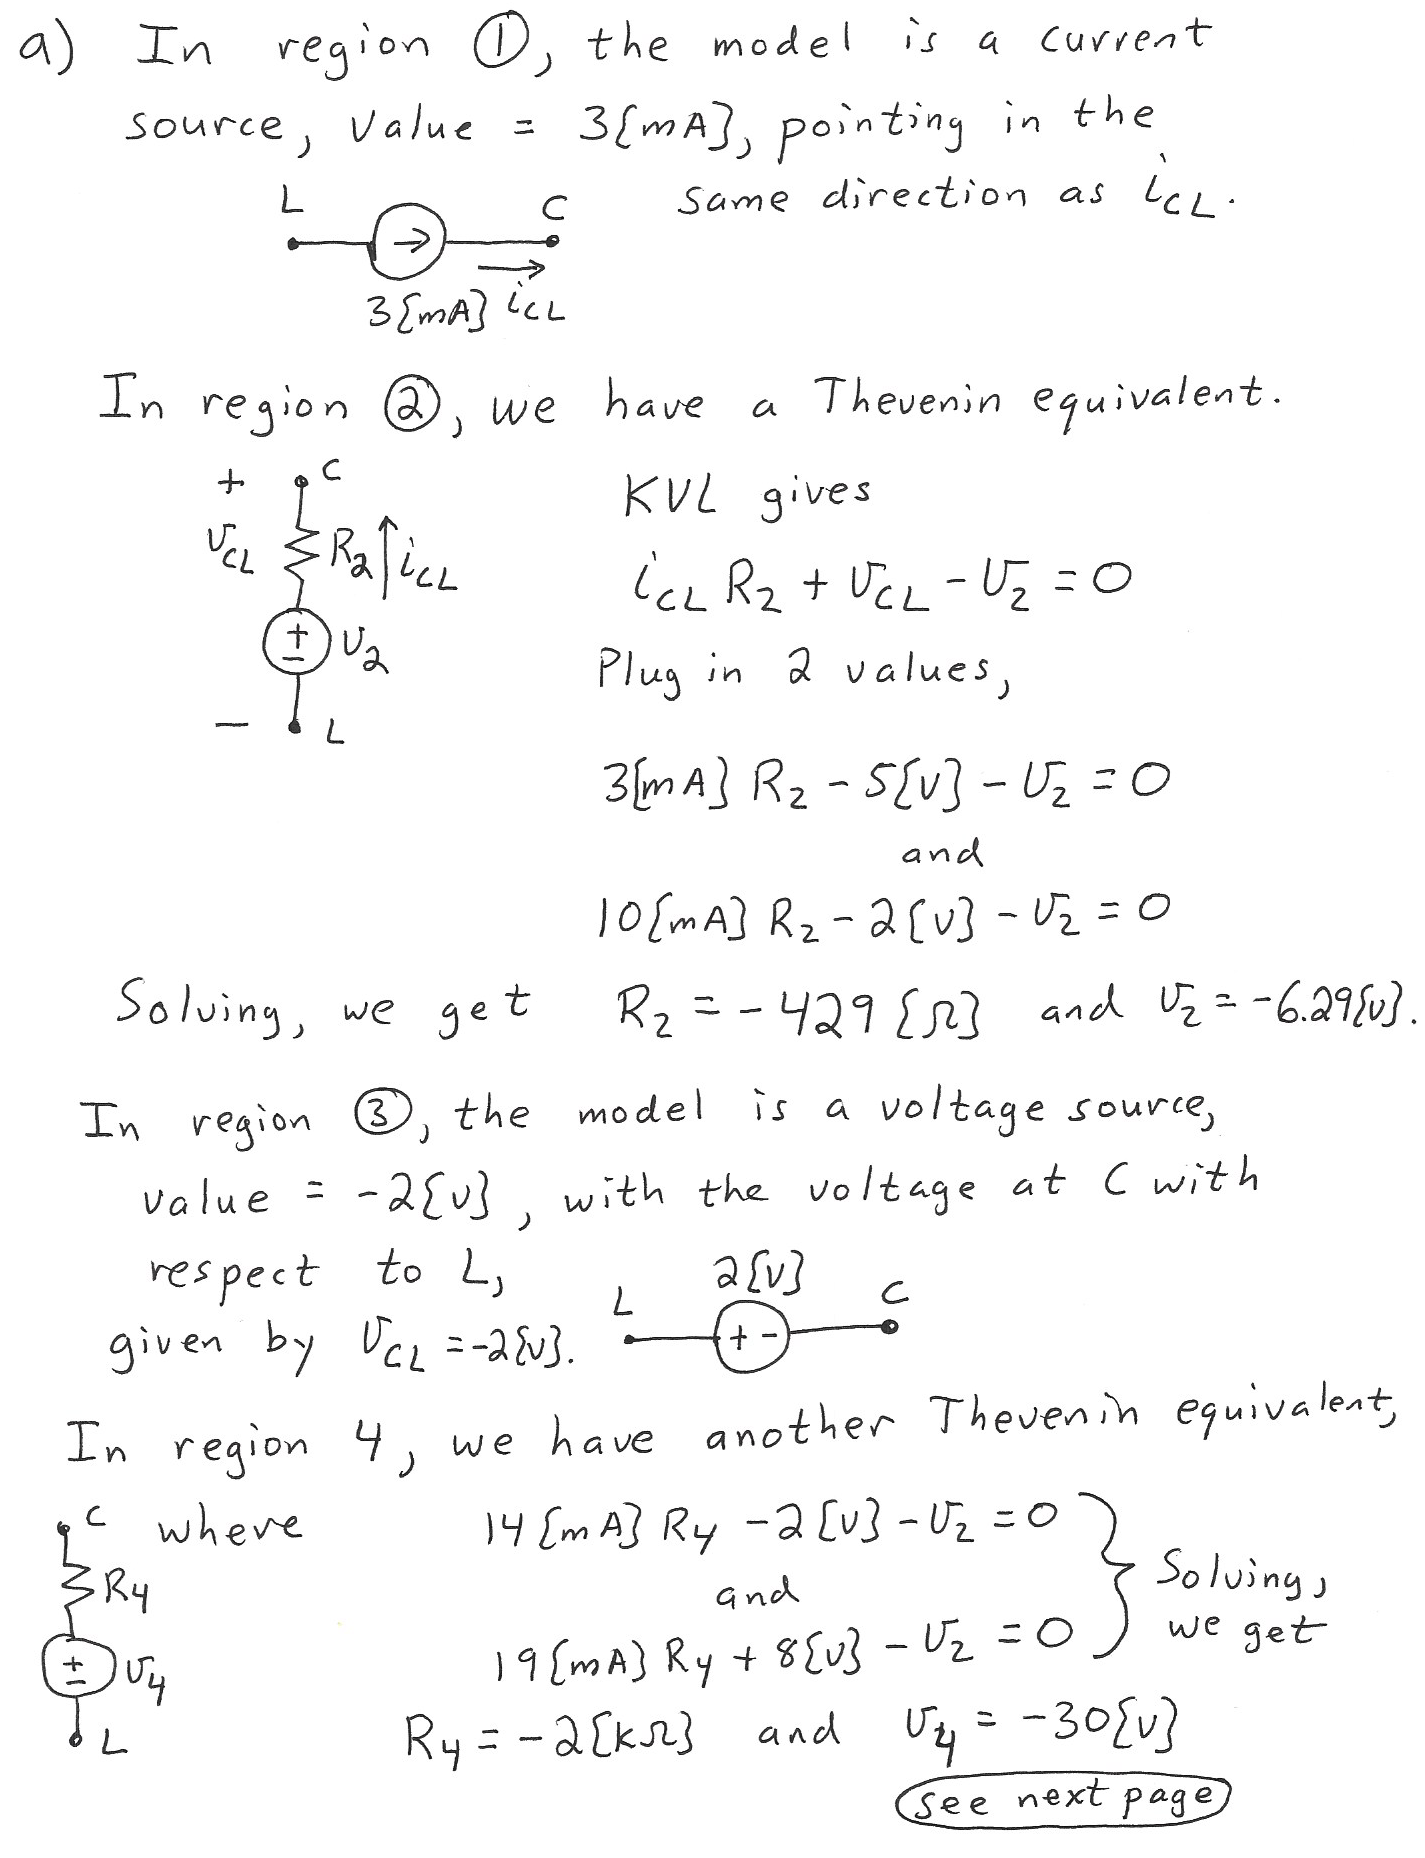 a) In region ①, the model is a current
source, value = 3[mA], pointing in the
same direction as i_CL.
L C
3[mA] i_CL
In region ②, we have a Thevenin equivalent.
+ C
KVL gives
v_CL R_2 i_CL
i_CL R_2 + v_CL - v_2 = 0
+ - v_2
Plug in 2 values,
- L
3[mA] R_2 - 5[V] - v_2 = 0
and
10[mA] R_2 - 2[V] - v_2 = 0
Solving, we get R_2 = -429[Ω] and v_2 = -6.29[V].
In region ③, the model is a voltage source,
value = -2[V], with the voltage at C with
respect to L,
given by v_CL = -2[V].
2[V]
L + - C
In region 4, we have another Thevenin equivalent,
C where
14[mA] R_4 - 2[V] - v_2 = 0
R_4
and
19[mA] R_4 + 8[V] - v_2 = 0
Solving,
we get
+ - v_4
L
R_4 = -2[kΩ] and v_4 = -30[V]
see next page